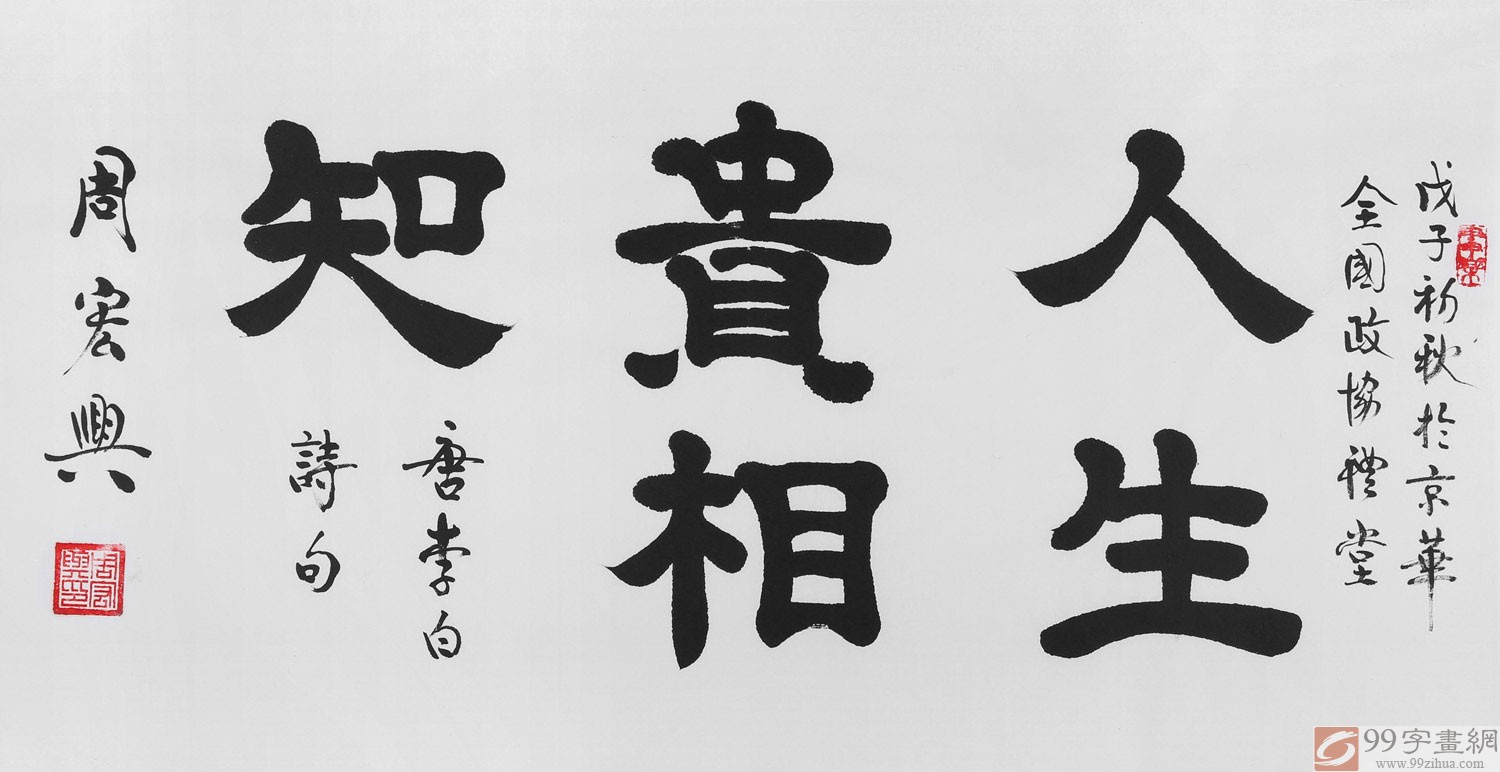 戊子初秋於京華
全國政協禮堂
人生
貴相
知
唐李白
詩句
周宏興
99字畫網
www.99zihua.com